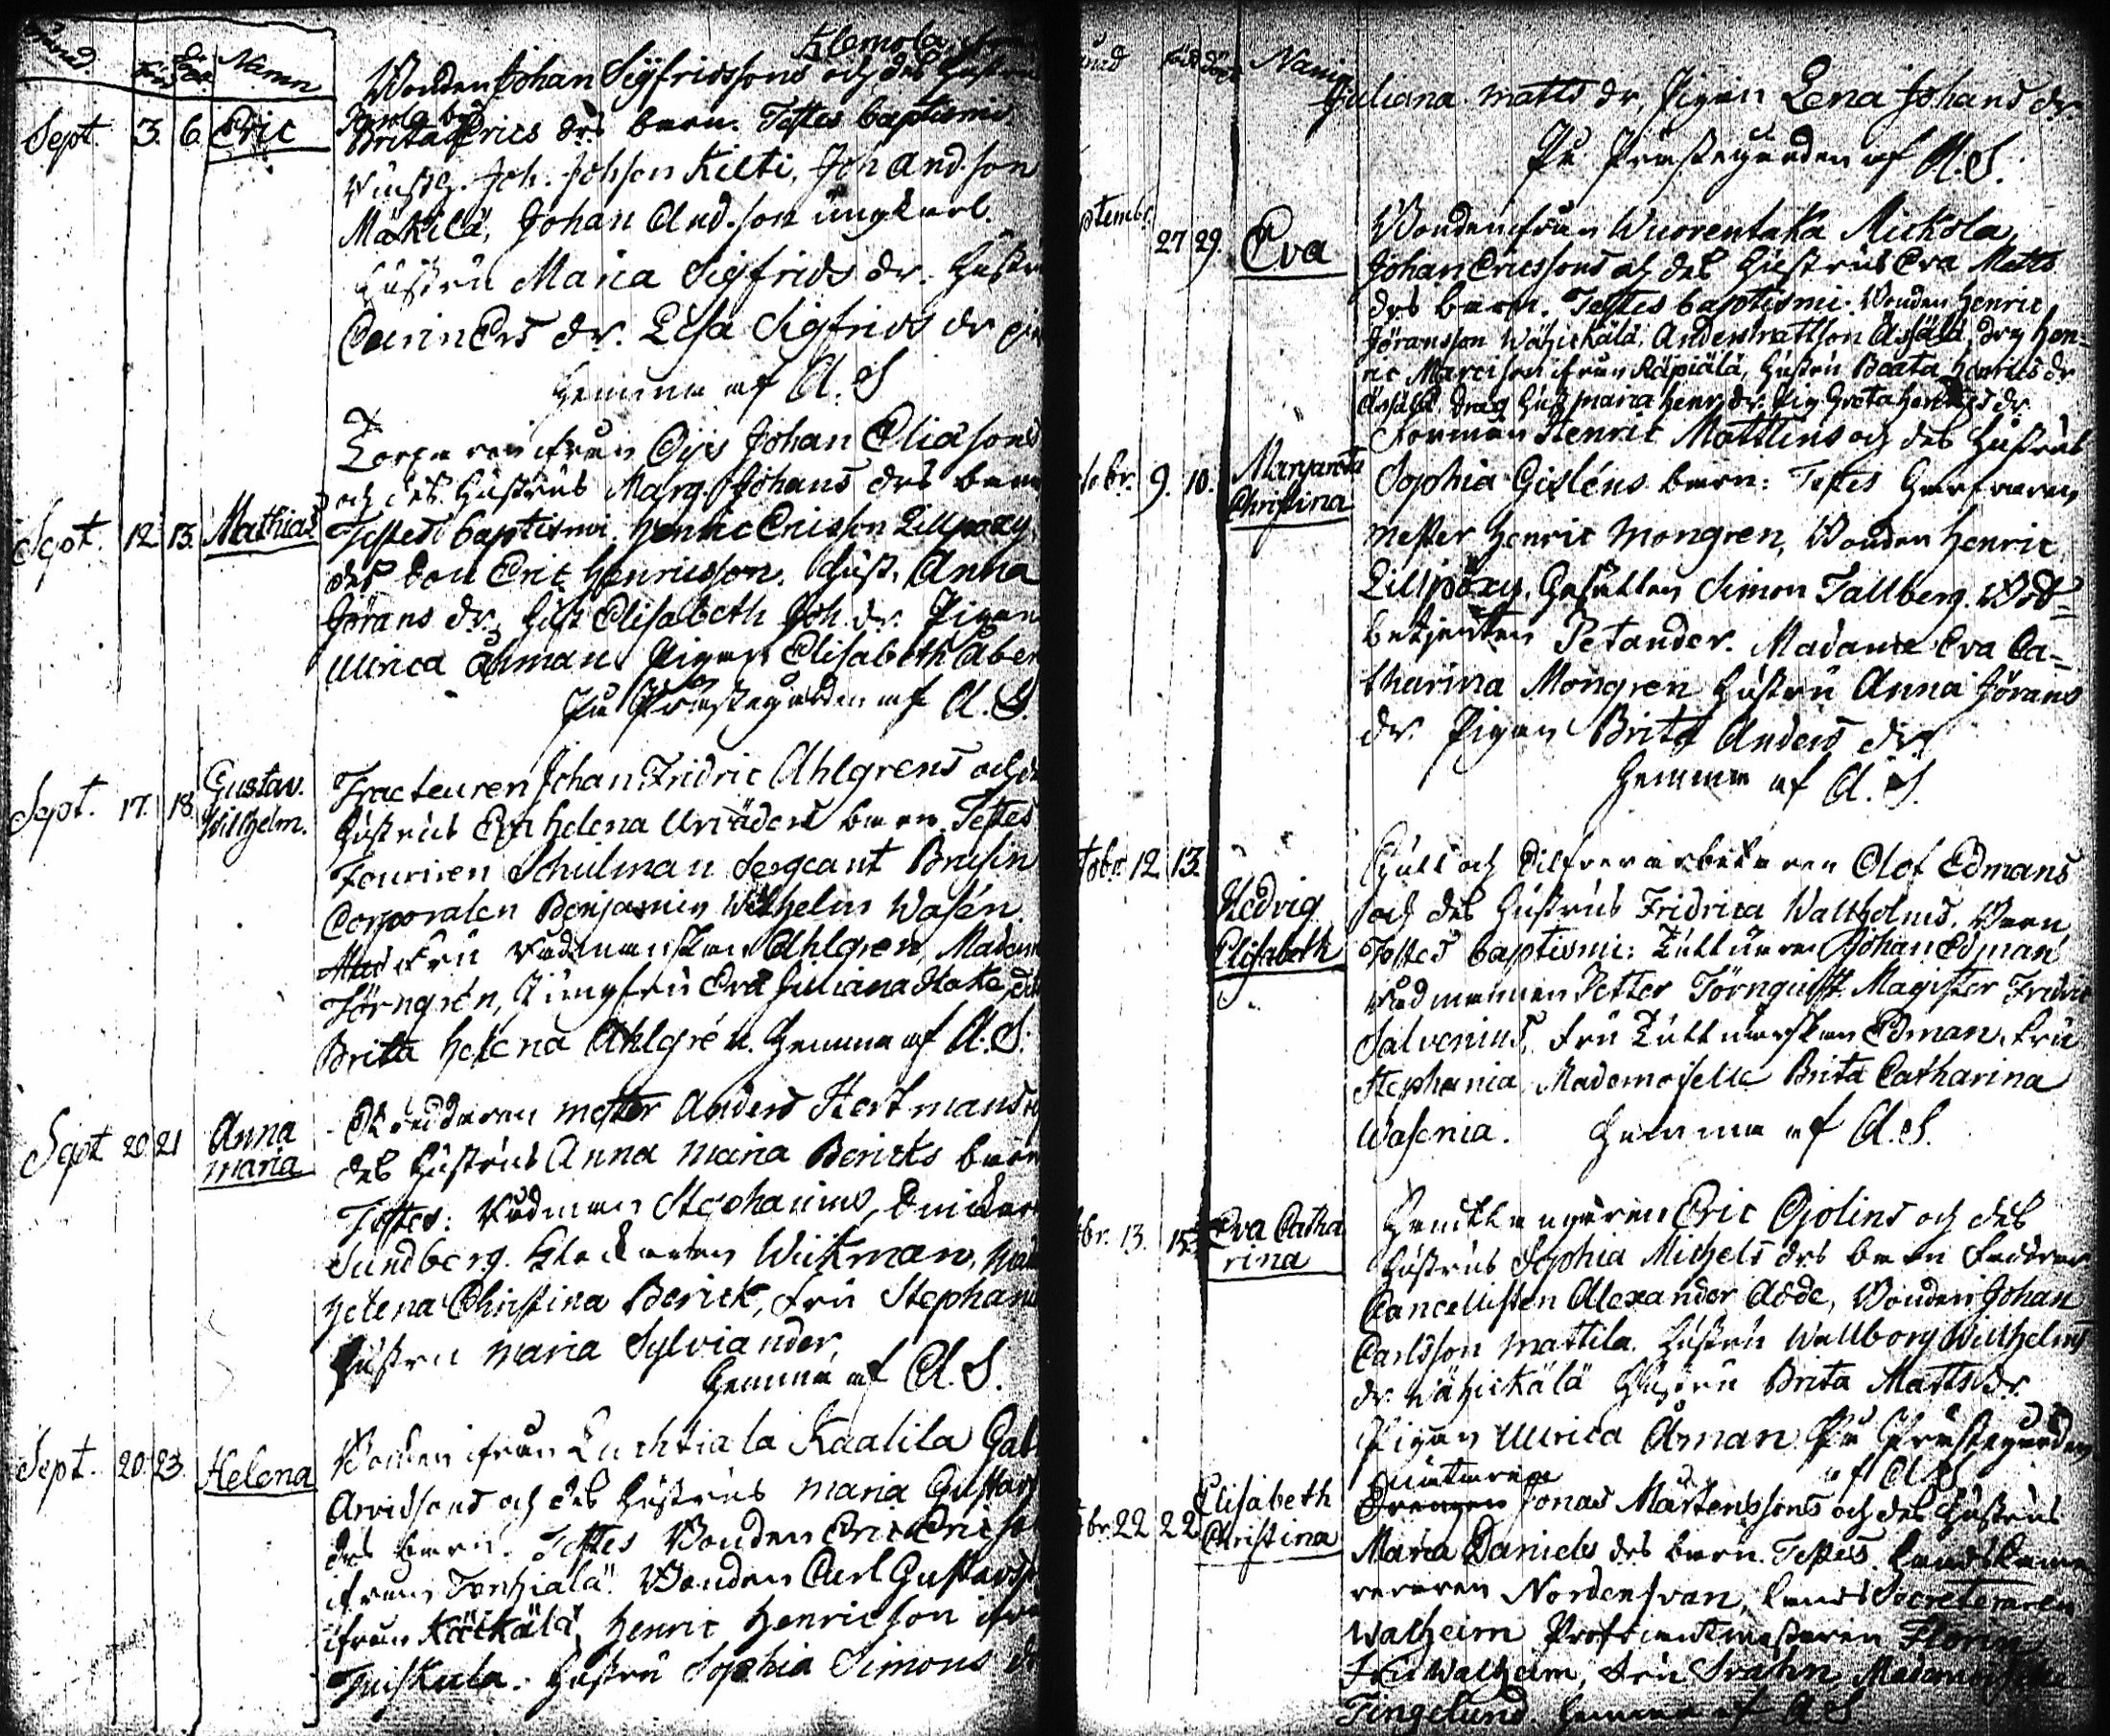 Namn
Klemola
Bonden Johan Sigfridssons och des hustrus
Sept. 3. 6. Eric
Brita Erics drs barn. Testes baptismi
Joh. Johsson Kilti, Joh And.son
Mäkilä, Johan And.son ungkarl.
Hustru Maria Sigfrids dr. Hustr
Carin Ers dr. Lisa Sigfrids dr
hemma af A. S
Torparen ifrån Ojs Johan Eliasons
och des hustrus Marg. Johans drs barn
Sept. 12 13. Mathias
Testes baptismi. Henric Ericsson Lillpoxy
des son Eric Henricsson. Hust. Anna
Jörans dr, Hust Elisabeth Joh. dr. Pigan
Ulrica Åhman. Pigan Elisabeth Åber
På Prästegården af A. S.
Sept. 17. 18 Gustav. Wilhelm.
Tracteuren Johan Fridric Ahlgrens och
hustrus Eva Helena barn. Testes
Fouriren Schulman Sergeant Brusin
Corporalen Benjamin Wilhelm Wasén.
Fru Rådmanskan Ahlgren, Madam
Törngrén, Jungfru Eva Juliana
Brita Helena Ahlgrén. Hemma af A. S.
Sept 20 21 Anna maria
Skräddaren mester Anders Hertmans
des hustrus Anna Maria Bericks barn
Testes: Rådman Stephanius,
Sundberg. Klockaren Wickman,
Helena Christina Berick, Fru Stephan
Hustru Maria Sylviander.
Hemma af A. S.
Sept. 20. 23. Helena
Bonden ifrån Luchtiala Kaalila Gab
Arvidsons och des hustrus Maria Gustavs
drs barn. Testes Bonden Eric Ericson
ifrån Tenhialä. Bonden Carl Gustavs
ifrån Käckälä, Henric Henricson ifrå
Tuiskula. Hustru Sophia Simons dr
Namn
Juliana Matts dr, Pigan Lena Johans dr.
På Prästegården af A. S.
ptembr. 27 29. Eva
Bonden ifrån Wuorentaka Mickola
Johan Ericssons och des Hustrus Eva Matts
drs barn. Testes baptismi. Bonden Henric
Jöransson Wähickälä, Anders Mattson Assälä, drg Hen=
ric Marcison ifrån Räpiälä, Hustru Beata Henrics dr
Assälä Drag Hust Maria Henr dr. Pig Greta Henrics dr.
tobr. 9. 10. Margareta Christina
Forman Henric Mattlins och des hustrus
Sophia Gisléns barn: Testes Garfvaren
mester Henric Mongren, Bonden Henric
Lillpoxy. Gesällen Simon Tallberg.
betjenten Petander. Madame Eva Ca=
tharina Mongren Hustru Anna Jörans
dr Pigan Brita Anders dr
Hemma af A. S.
tobr 12 13. Hedvig Elisabeth
Guld och Silfverarbetaren Olof Edmans
och des hustrus Fridrica Wallholms. Barn
Testes baptismi: Tullnären Johan Edman
Rådmannen Petter Törnquist Magister Fridric
Salvenius, Fru Tullnärskan Edman, Fru
Stephania Mademoiselle Brita Catharina
Wasenia. Hemma af A. S.
br. 13. 15. Eva Catha rina
Eric Ojolins och des
hustrus Sophia Michels drs barn Faddrar
Cancellisten Alexander Aode, Bonden Johan
Carlsson Mattila. Hustru Wallborg Wilhelms
dr Wähickälä Hustru Brita Matts dr.
Pigan Ulrica Åman På Prästegården
af A. S
br. 22 22 Elisabeth Christina
Jonas Mårtenssons och des hustrus
Maria Daniels drs barn. Testes Landskame
reraren Nordensvan, Lands Secreteraren
Walheim Profiantmestaren Florin
Fru Walheim, Fru Svahn,
Tingelund. Hemma af A S